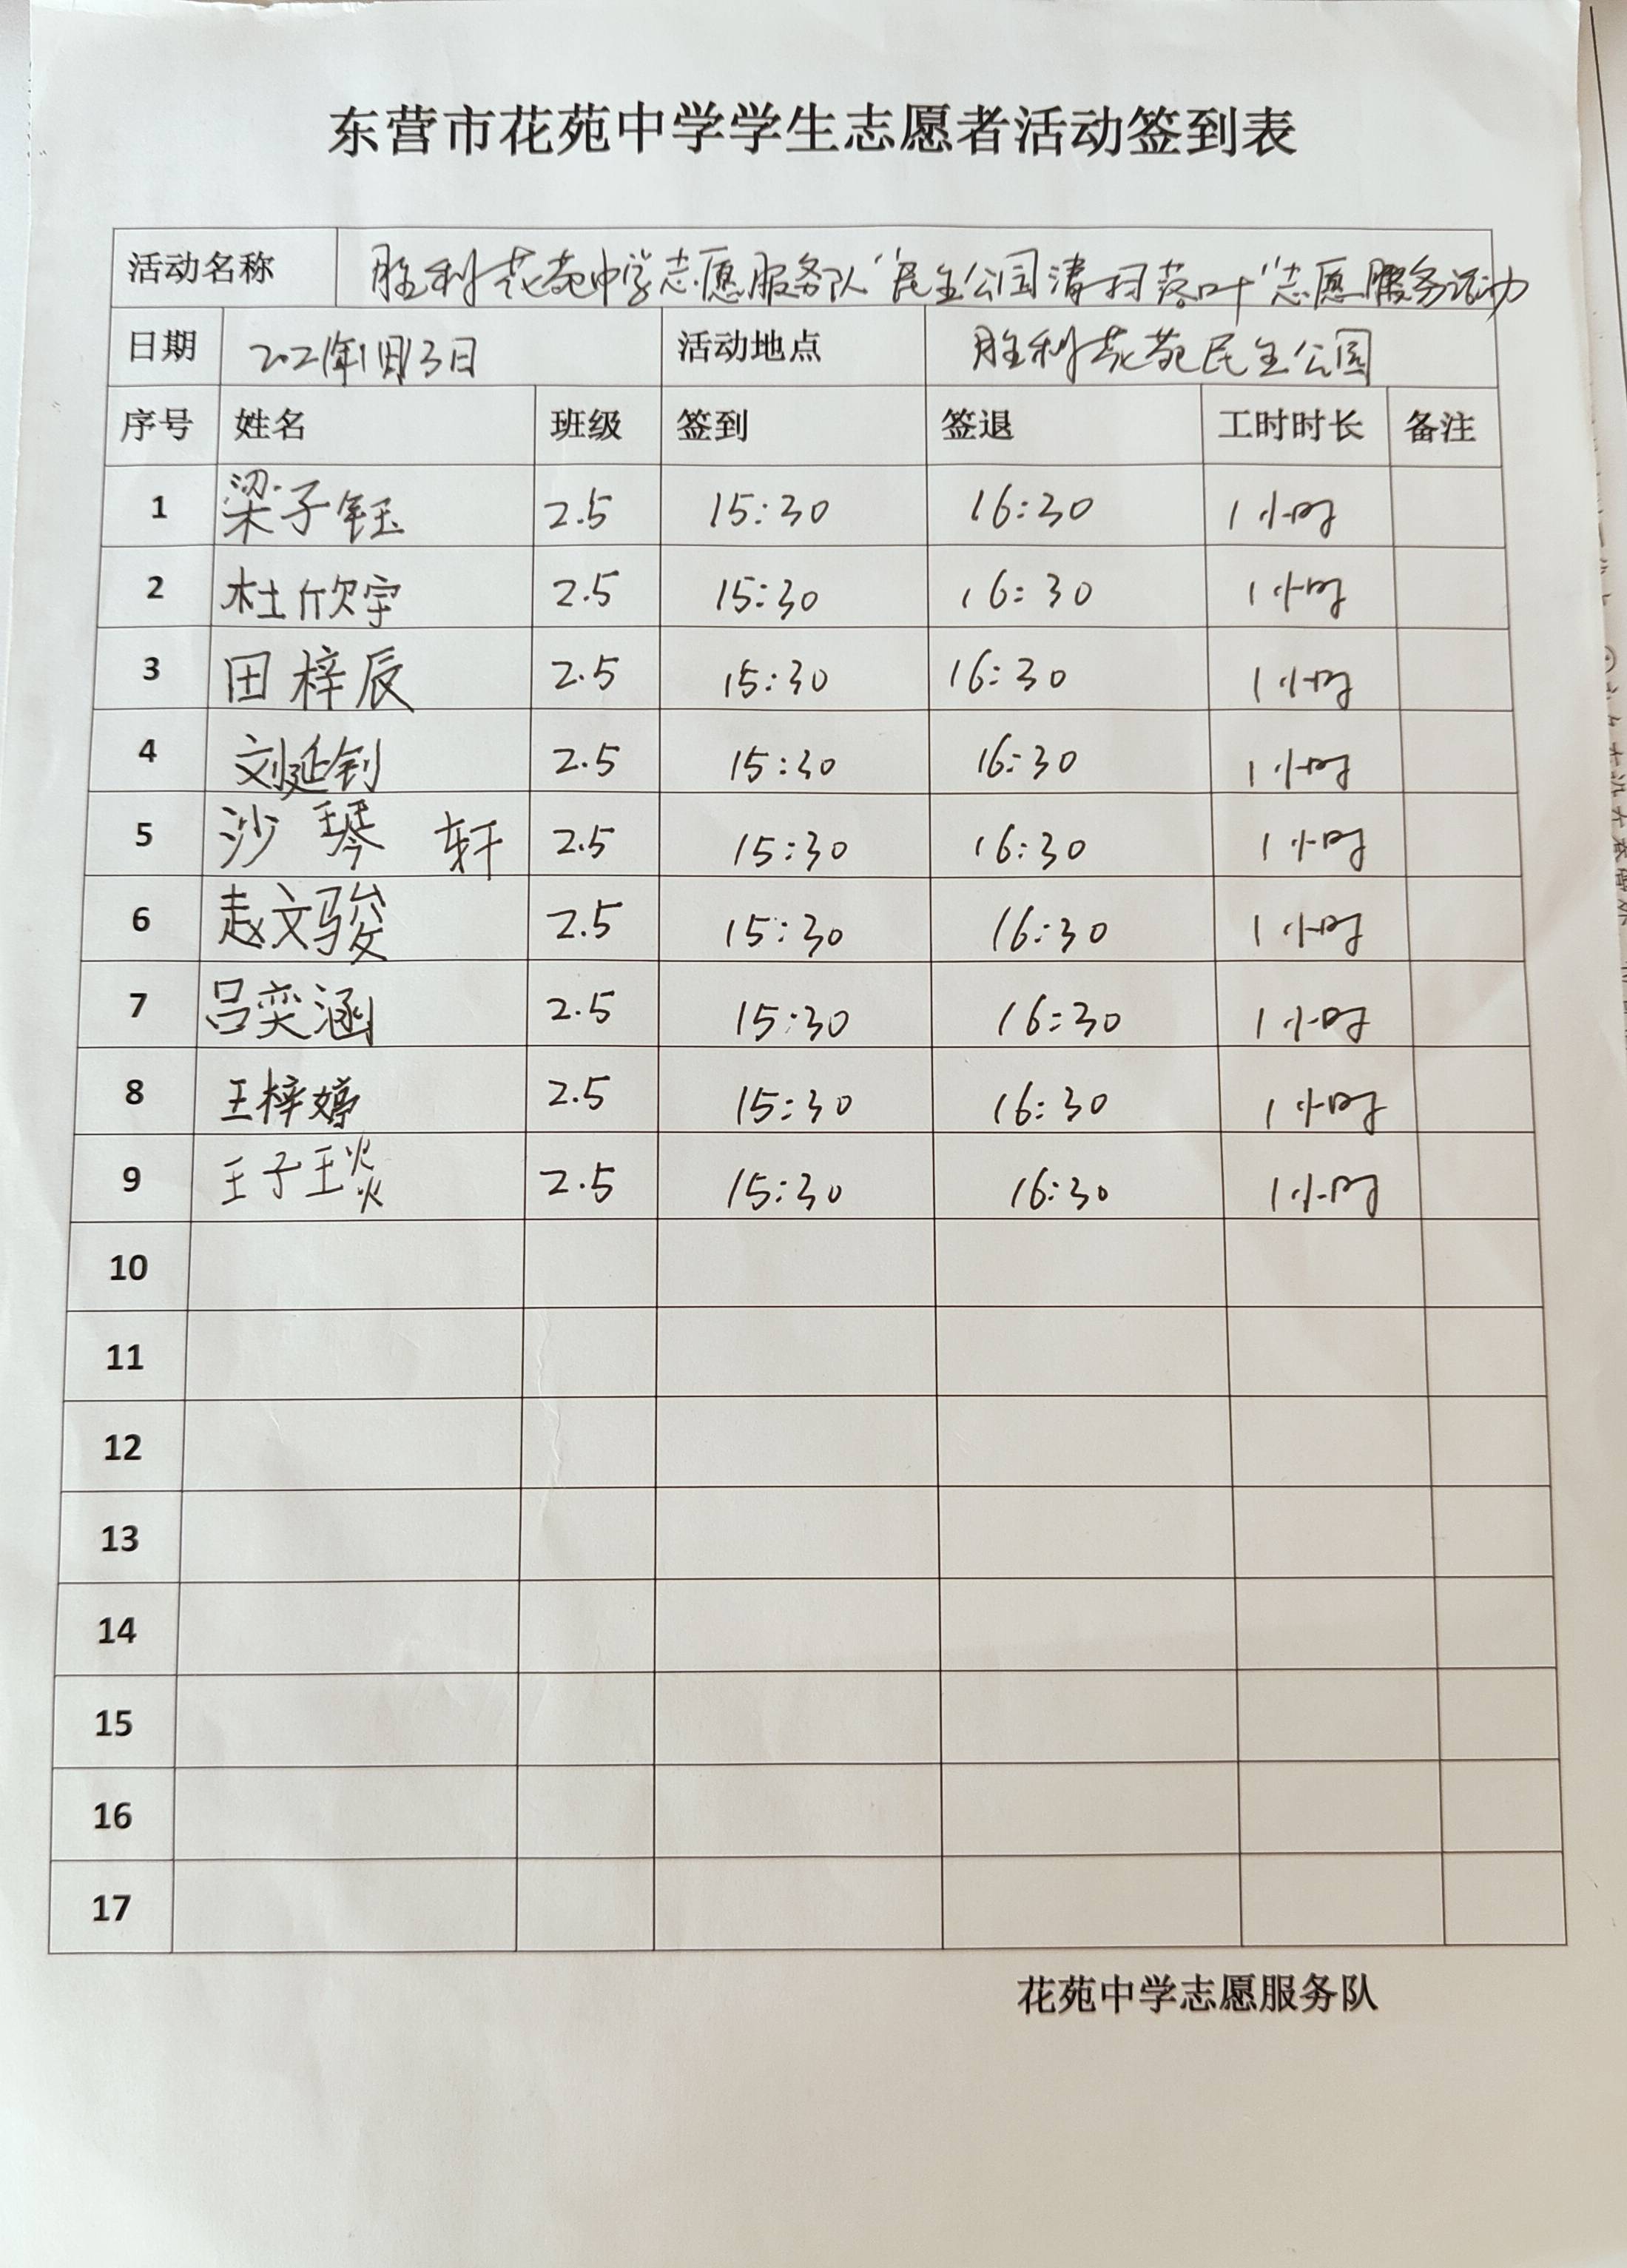 东营市花苑中学学生志愿者活动签到表
活动名称 胜利花苑中学志愿服务队"民生公园清扫落叶"志愿服务活动
日期 2021年11月13日 活动地点 胜利花苑民生公园
序号 姓名 班级 签到 签退 工时时长 备注
1 梁子钰 2.5 15:30 16:30 1小时
2 杜欣宇 2.5 15:30 16:30 1小时
3 田梓辰 2.5 15:30 16:30 1小时
4 刘延钊 2.5 15:30 16:30 1小时
5 沙琴轩 2.5 15:30 16:30 1小时
6 赵文骏 2.5 15:30 16:30 1小时
7 吕奕涵 2.5 15:30 16:30 1小时
8 王梓婷 2.5 15:30 16:30 1小时
9 王子琰 2.5 15:30 16:30 1小时
10
11
12
13
14
15
16
17
花苑中学志愿服务队